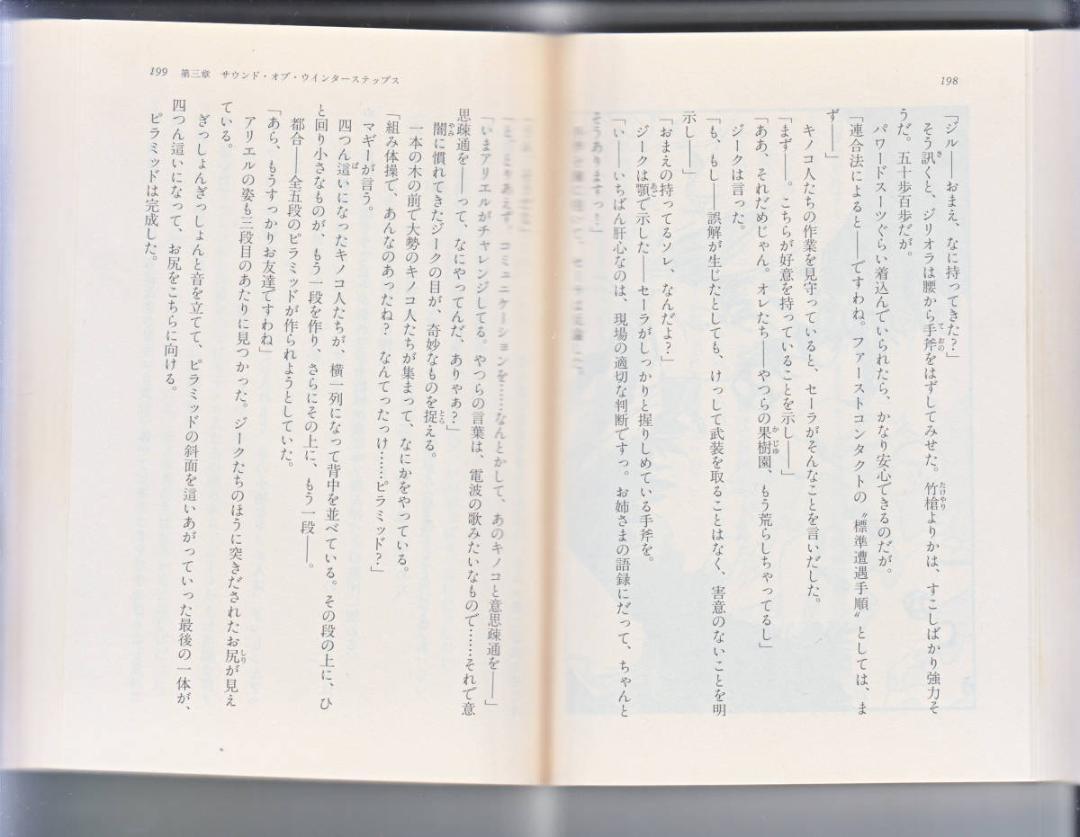 198
「ジル――おまえ、なに持ってきた?」
そう訊くと、ジリオラは腰から手斧をはずしてみせた。竹槍よりかは、すこしばかり強力そ
うだ。五十歩百歩だが。
パワードスーツぐらい着込んでいられたら、かなり安心できるのだが。
「連合法によると――ですわね。ファーストコンタクトの〝標準遭遇手順〟としては、ま
ず――」
キノコ人たちの作業を見守っていると、セーラがそんなことを言いだした。
「まず――。こちらが好意を持っていることを示し――」
「ああ、それだめじゃん。オレたち――やつらの果樹園、もう荒らしちゃってるし」
ジークは言った。
「も、もし――誤解が生じたとしても、けっして武装を取ることはなく、害意のないことを明
示し――」
「おまえの持ってるソレ、なんだよ?」
ジークは顎で示した――セーラがしっかりと握りしめている手斧を。
「い――いちばん肝心なのは、現場の適切な判断ですっ。お姉さまの語録にだって、ちゃんと
そうありますっ!」
199 第三章 サウンド・オブ・ウインターステップス
「と、とりあえず。コミュニケーションを……なんとかして、あのキノコと意思疎通を――」
「いまアリエルがチャレンジしてる。やつらの言葉は、電波の歌みたいなもので……それで意
思疎通を――って、なにやってんだ、ありゃあ?」
闇に慣れてきたジークの目が、奇妙なものを捉える。
一本の木の前で大勢のキノコ人たちが集まって、なにかをやっている。
「組み体操で、あんなのあったね? なんてったっけ……ピラミッド?」
マギーが言う。
四つん這いになったキノコ人たちが、横一列になって背中を並べている。その段の上に、ひ
と回り小さなものが、もう一段を作り、さらにその上に、もう一段――。
都合――全五段のピラミッドが作られようとしていた。
「あら、もうすっかりお友達ですわね」
アリエルの姿も三段目のあたりに見つかった。ジークたちのほうに突きだされたお尻が見え
ている。
ぎっしょんぎっしょんと音を立てて、ピラミッドの斜面を這いあがっていった最後の一体が、
四つん這いになって、お尻をこちらに向ける。
ピラミッドは完成した。